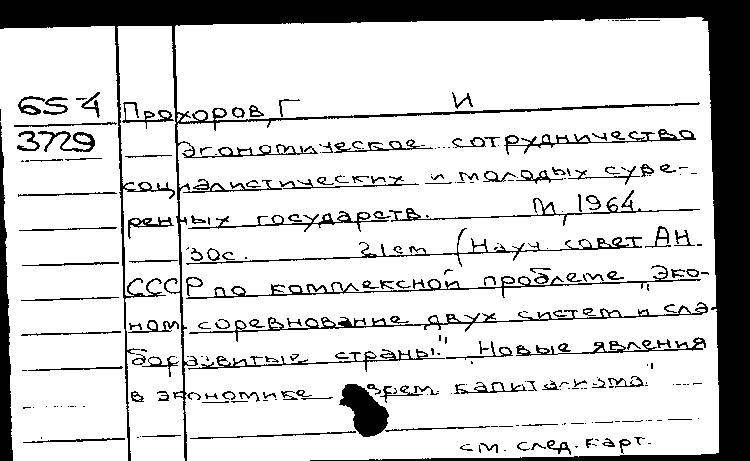 654 Прохоров, Г И
3729 Экономическое сотрудничество
социалистических и молодых суве-
ренных государств. М, 1964.
30с. 21см (Науч. совет АН
СССР по комплексной проблеме „Эко-
ном. соревнование двух систем и сла-
боразвитые страны" „Новые явления
в экономике капитализма"
см. след. карт.